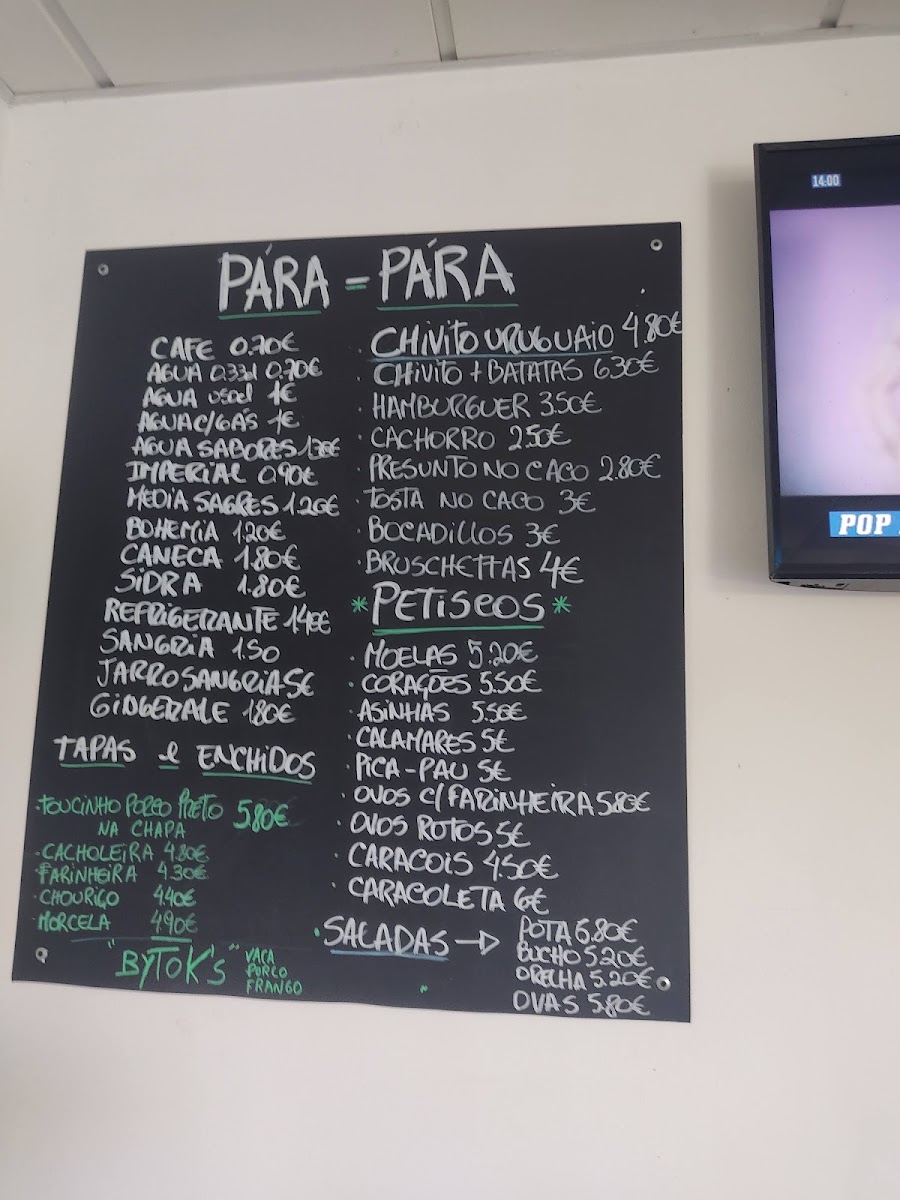 PÁRA - PÁRA
CAFE 0.70€
AGUA 0.33l 0.70€
AGUA 1€
AGUA C/GÁS 1€
AGUA SABORES
IMPERIAL 0.90€
MEDIA SAGRES 1.20€
BOHEMIA 1.20€
CANECA 1.80€
SIDRA 1.80€
REFRIGERANTE 1.40€
SANGRIA 1.50
JARRO SANGRIA 5€
GINGERALE 1.80€
TAPAS e ENCHIDOS
TOUCINHO PORCO PRETO 5.80€
NA CHAPA
CACHOLEIRA 4.80€
FARINHEIRA 4.30€
CHOURIÇO 4.40€
MORCELA 4.90€
"BYTOK'S" VACA
PORCO
FRANGO
CHIVITO URUGUAIO 4.80€
CHIVITO + BATATAS 6.30€
HAMBURGUER 3.50€
CACHORRO 2.50€
PRESUNTO NO CACO 2.80€
TOSTA NO CACO 3€
BOCADILLOS 3€
BRUSCHETTAS 4€
* PETISCOS *
MOELAS 5.20€
CORAÇÕES 5.50€
ASINHAS 5.50€
CALAMARES 5€
PICA-PAU 5€
OVOS C/FARINHEIRA 5.80€
OVOS ROTOS 5€
CARACOIS 4.50€
CARACOLETA 6€
SALADAS → POTA 6.80€
BUCHO 5.20€
ORELHA 5.20€
OVAS 5.80€
14:00
POP